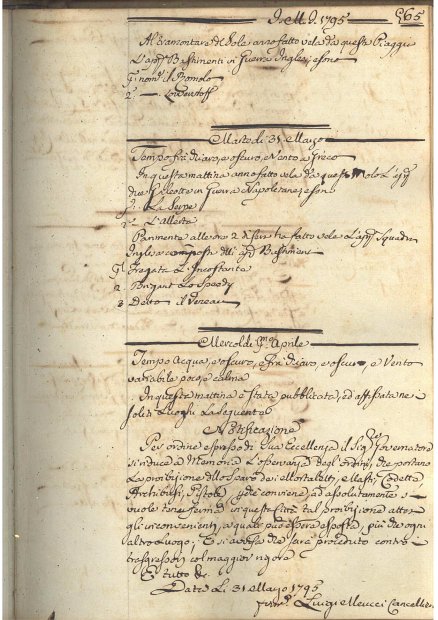 I.M.I. 1795 565
Al tramontare del Sole anno fatto vela da queste Piagge
Bastimenti in Guerra Inglesi e sono
P.º nom.º il Romolo
2.º
Martedì 31 Marzo
Tempo frà chiaro, e oscuro, e Vento a Greco
In questa mattina anno fatto vela da questo Molo
due Galeotte in Guerra Napoletane, e sono
P.ª La Serpe
2.ª L'Allerta
Parimente alle ore 2 ha fatto vela Squadra
Inglese composta Bastimenti
P.ª Fregata L'Incostante
2. Brigant. Lo Speedy
3 Detto il
Mercoldì P.º Aprile
Tempo Acqua, e oscuro, e frà chiaro, e oscuro, e Vento
variabile poco, e calma
In questa mattina è stata pubblicata, ed affissata ne
soliti Luoghi La seguente
Notificazione
Per ordine espresso di Sua Eccellenza il Sig.re Governatore
si riduce a Memoria L'osservanza degl'ordini, che portano
La proibizione dello Sparo dei Mortaletti,
Archibusi, Pistole conviene, ed assolutamente si
vuole tener ferma in questa Città tal proibizione attesi
gli inconvenienti, a quali può essere esposta, più che ogni
altro Luogo; E si avvisa che sarà proceduto contro i
trasgressori col maggior rigore
E tutto &c.
Dat.e Lì 31 Marzo 1795
Luigi Meucci Cancell.e